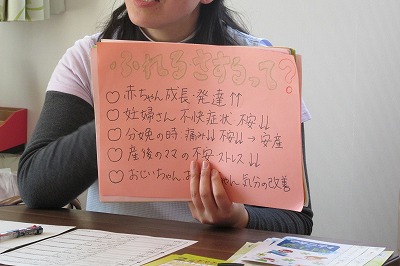 ふれる さするって?
赤ちゃん 成長・発達↑↑
妊婦さん 不快症状 不安↓↓
分娩の時 痛み↓↓ 不安↓↓ → 安産
産後のママの不安 ストレス ↓↓
おじいちゃん お ちゃん 気分の改善